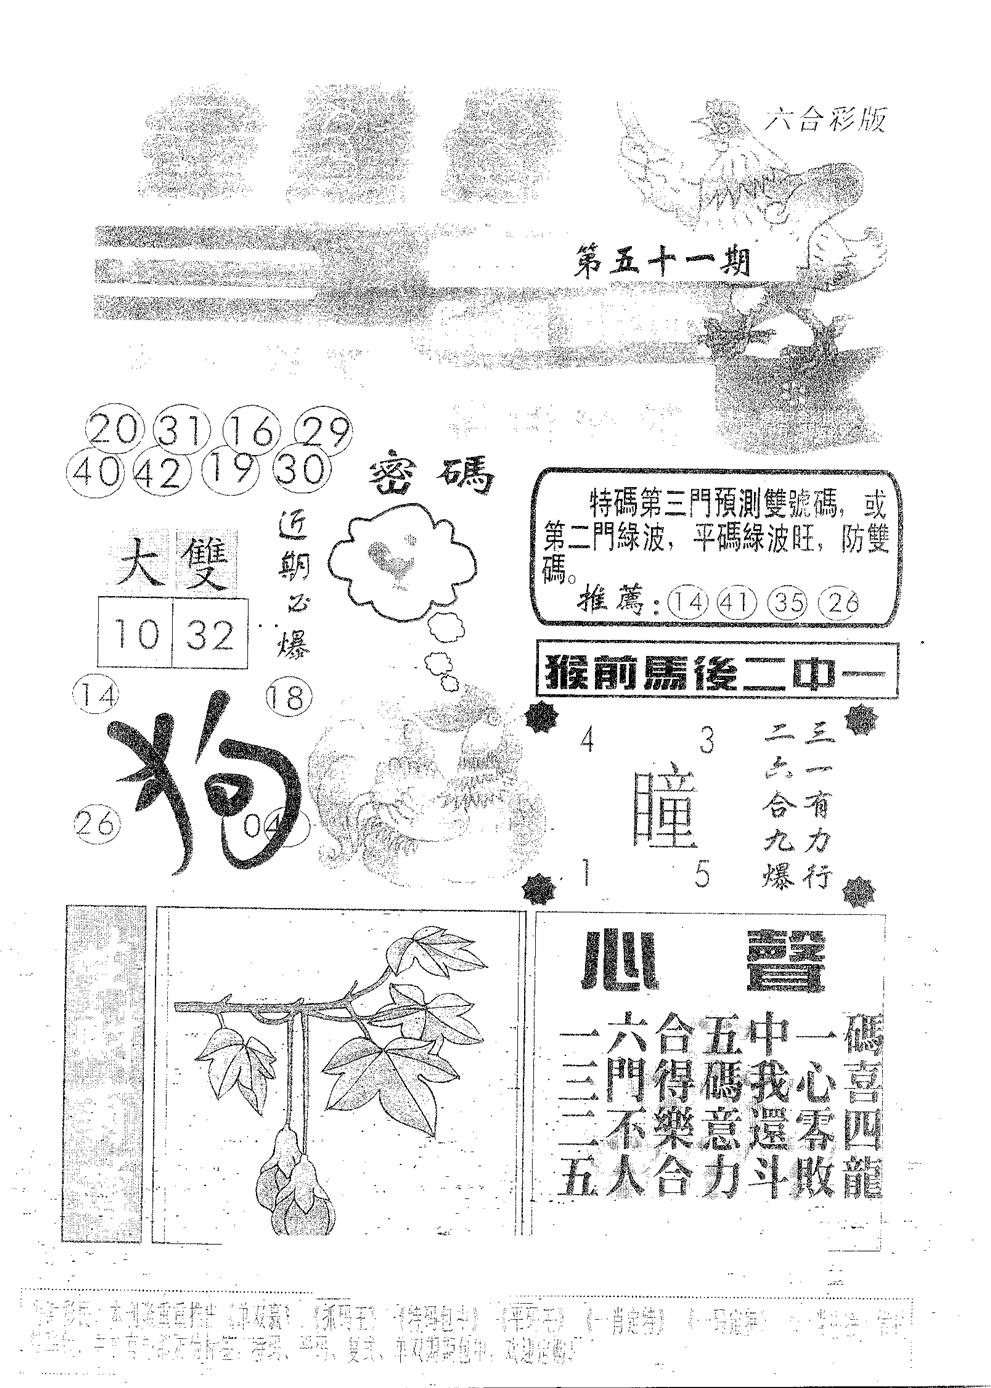 六合彩版
第五十一期
20 31 16 29
40 42 19 30
密碼
近期必爆
大 雙
10 32
14 18
狗
26 04
特碼第三門預測雙號碼，或
第二門綠波，平碼綠波旺，防雙
碼。
推薦：14 41 35 26
猴前馬後二中一
4 3
瞳
1 5
三一有力行
二六合九爆
心聲
一六合五中一碼
三門得碼我心喜
二不樂意還零四
五人合力斗敗龍